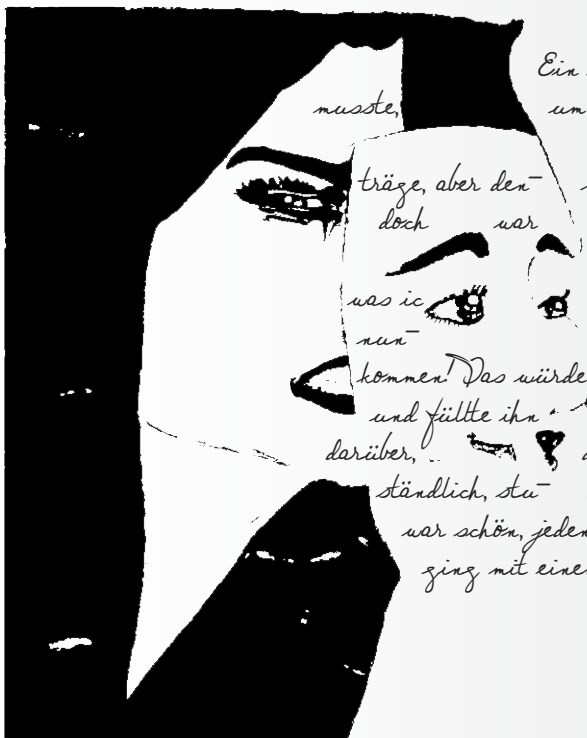 Ein
musste, um
träge, aber den-
doch war
was ic
nun-
kommen! Das würde
und füllte ihn
darüber,
ständlich, stu-
war schön, jeden
ging mit eine